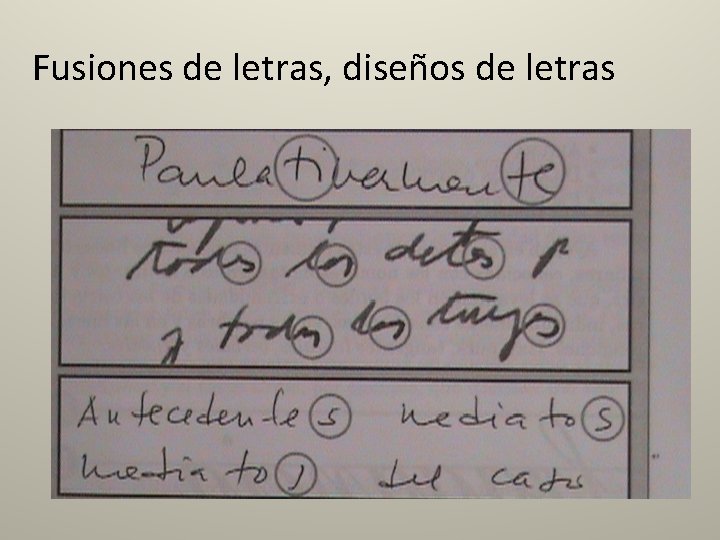 Fusiones de letras, diseños de letras
Paulativamente
todos los datos p
y todos los tuyos
Antecedentes mediatos
mediatos del caso